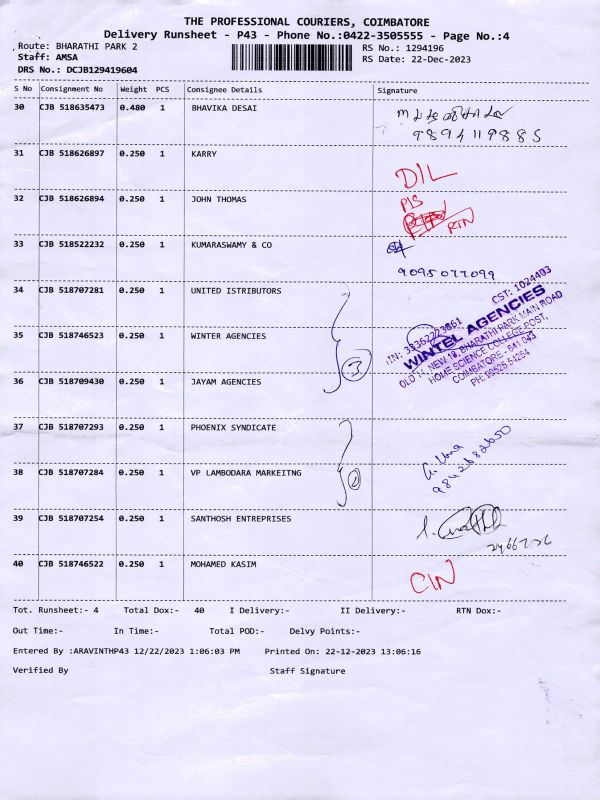 THE PROFESSIONAL COURIERS, COIMBATORE
Delivery Runsheet - P43 - Phone No.:0422-3505555 - Page No.:4
Route: BHARATHI PARK 2 RS No.: 1294196
Staff: AMSA RS Date: 22-Dec-2023
DRS No.: DCJB129419604
S No Consignment No Weight PCS Consignee Details Signature
30 CJB 518635473 0.480 1 BHAVIKA DESAI
9894119885
31 CJB 518626897 0.250 1 KARRY
DIL
32 CJB 518626894 0.250 1 JOHN THOMAS PIS
RTN
33 CJB 518522232 0.250 1 KUMARASWAMY & CO
9095077099
34 CJB 518707281 0.250 1 UNITED ISTRIBUTORS
CST: 1024403
TIN: 33362223861
WINTEL AGENCIES
35 CJB 518746523 0.250 1 WINTER AGENCIES
NEW 18, BHARATHI PARK MAIN ROAD
HOME SCIENCE COLLEGE POST,
COIMBATORE - 641 043
3
36 CJB 518709430 0.250 1 JAYAM AGENCIES
37 CJB 518707293 0.250 1 PHOENIX SYNDICATE
38 CJB 518707284 0.250 1 VP LAMBODARA MARKEITNG
2
39 CJB 518707254 0.250 1 SANTHOSH ENTREPRISES
40 CJB 518746522 0.250 1 MOHAMED KASIM
CIN
Tot. Runsheet:- 4 Total Dox:- 40 I Delivery:- II Delivery:- RTN Dox:-
Out Time:- In Time:- Total POD:- Delvy Points:-
Entered By :ARAVINTHP43 12/22/2023 1:06:03 PM Printed On: 22-12-2023 13:06:16
Verified By Staff Signature